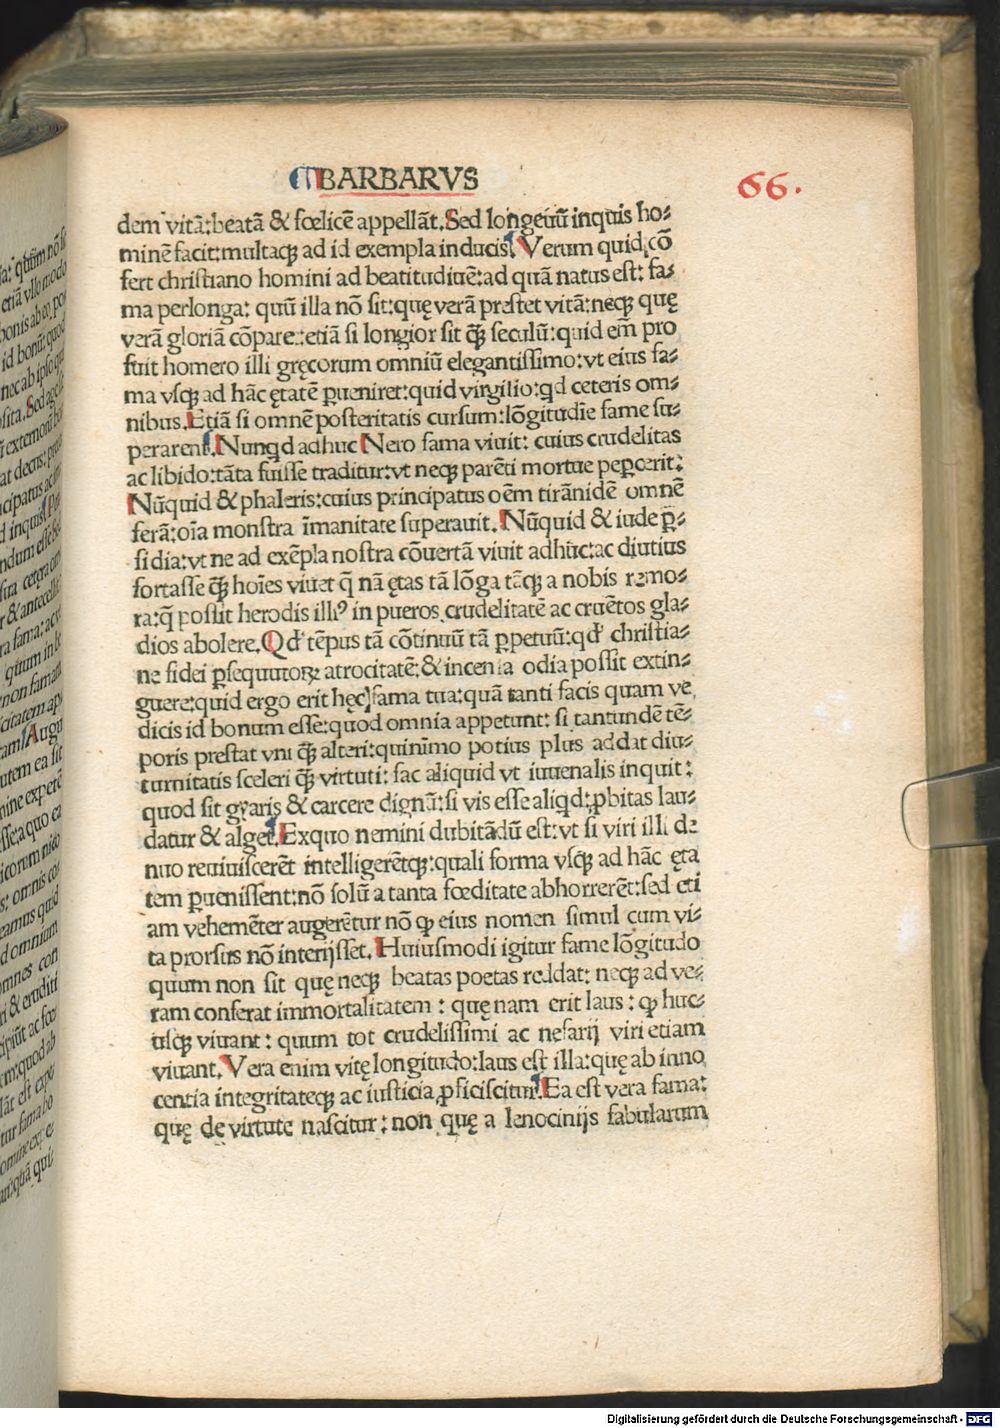 BARBARVS
66.
dem vitã:beatã & fœlicẽ appellãt. Sed longeuũ inquis ho⸗
minẽ facit:multaqꝫ ad id exempla inducis. Verum quid cõ
fert christiano homini ad beatitudinẽ:ad quã natus est: fa⸗
ma perlonga: quũ illa nõ sit:quę verã prestet vitã:neqꝫ quę
verã gloriã cõpare.:etiã si longior sit qꝫ̃ seculũ:quid em̃ pro
fuit homero illi gręcorum omniũ elegantissimo:vt eius fa⸗
ma vsqꝫ ad hãc ętatẽ ꝑueniret:quid virgilio:qd ceteris om⸗
nibus. Etiã si omnẽ posteritatis cursum:lõgitudĩe fame su⸗
perarent. Nunqd adhuc Nero fama viuit: cuius crudelitas
ac libido:tãta fuisse traditur:vt neqꝫ parẽti mortue peꝑcerit:
Nũquid & phaleris:cuius principatus oẽm tirãnidẽ omnẽ
ferã:oĩa monstra ĩmanitate superauit. Nũquid & iude ꝑ⸗
fidia:vt ne ad exẽpla nostra cõuertã viuit adhuc:ac diutius
fortasse qꝫ̃ hoĩes viuet q̃ nã ętas tã lõga tãqꝫ a nobis remo⸗
ra:q̃ possit herodis illiꝰ in pueros crudelitatẽ ac cruẽtos gla⸗
dios abolere. Qđ tẽpus tã cõtinuũ tã ꝑpetuũ:qđ christia⸗
ne fidei ꝑsequutoꝝ atrocitatẽ:& incensa odia possit extin⸗
guere:quid ergo erit hęc fama tua:quã tanti facis quam ve
dicis id bonum esse:quod omnia appetunt: si tantundẽ tẽ⸗
poris prestat vni qꝫ̃ alteri:quinĩmo potius plus addat diu⸗
turnitatis sceleri qꝫ̃ virtuti: fac aliquid vt iuuenalis inquit:
quod sit gyaris & carcere dignũ:si vis esse aliqd:ꝓbitas lau⸗
datur & alget. Exquo nemini dubitãdũ est:vt si viri illi de
nuo reuiuiscerẽt intelligerẽtqꝫ:quali forma vsqꝫ ad hãc ęta
tem ꝑuenissent:nõ solũ a tanta fœditate abhorrerẽt:sed eti
am vehemẽter augerẽtur nõ ꝙ eius nomen simul cum vi⸗
ta prorsus nõ interijsset. Huiusmodi igitur fame lõgitudo
quum non sit quę neqꝫ beatas poetas reddat: neqꝫ ad ve⸗
ram conferat immortalitatem : quę nam erit laus : ꝙ huc⸗
usqꝫ viuant : quum tot crudelissimi ac nefarij viri etiam
viuant. Vera enim vitę longitudo:laus est illa:quę ab inno
centia integritateqꝫ ac iusticia ꝓficiscitur. Ea est vera fama:
quę de virtute nascitur : non quę a lenocinijs fabularum
Digitalisierung gefördert durch die Deutsche Forschungsgemeinschaft - DFG